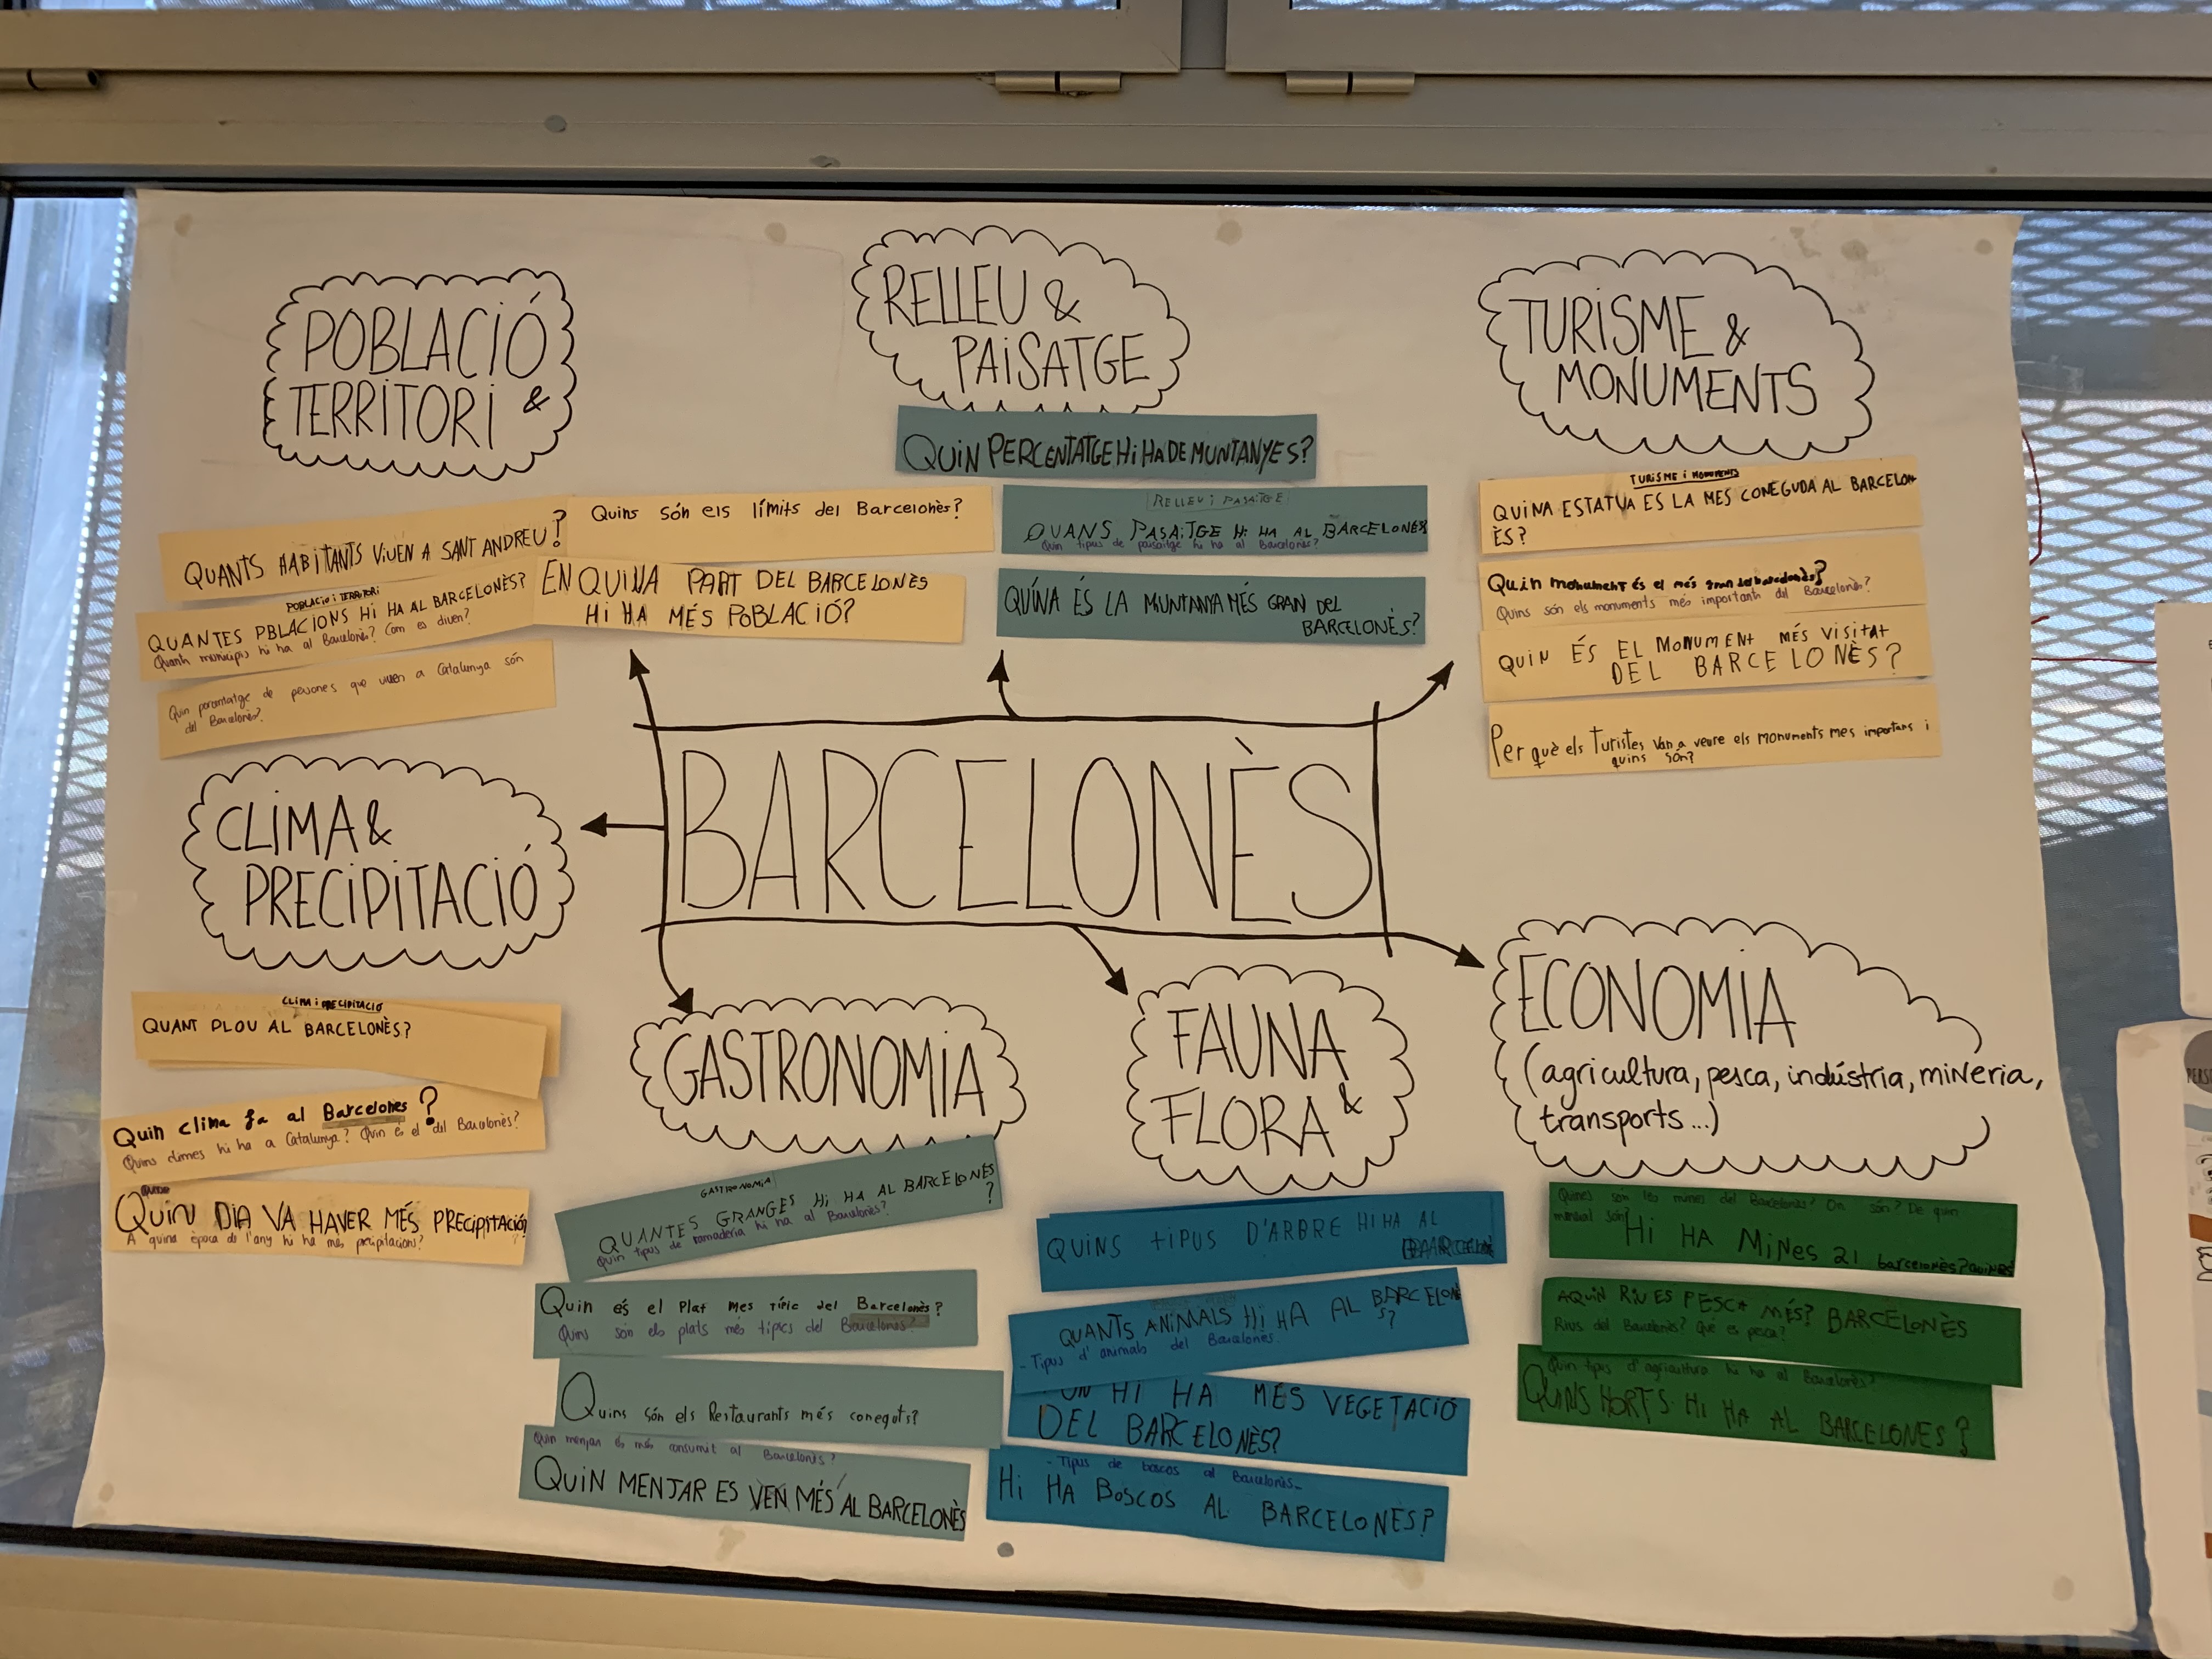 POBLACIÓ
& TERRITORI
QUANTS HABITANTS VIUEN A SANT ANDREU?
POBLACIO i TERRITORI
QUANTES PBLACIONS HI HA AL BARCELONÈS?
Quants municipis hi ha al Barcelonès? Com es diuen?
Quin percentatge de persones que viuen a Catalunya són
del Barcelonès?
Quins són els límits del Barcelonès?
EN QUINA PART DEL BARCELONÈS
HI HA MÉS POBLACIÓ?
RELLEU &
PAISATGE
QUIN PERCENTATGE HI HA DE MUNTANYES?
RELLEU i PASATGE
QUANS PASAITGE HI HA AL BARCELONES
Quin tipus de paisatge hi ha al Barcelonès?
QUÍNA ÉS LA MUNTANYA MÉS GRAN DEL
BARCELONÈS?
TURISME &
MONUMENTS
TURISME i MONUMENTS
QUINA ESTATUA ES LA MES CONEGUDA AL BARCELON
ÈS?
Quin monument és el més gran del barcelonès?
Quins són els monuments més importants del Barcelonès?
QUIN ÉS EL MONUMENT MÉS VISITAT
DEL BARCELONÈS?
Per què els Turistes van a veure els monuments mes importans i
quins són?
BARCELONÈS
CLIMA &
PRECIPITACIÓ
CLIMA i PRECIPITACIÓ
QUANT PLOU AL BARCELONÈS?
Quin clima fa al Barcelones?
Quins climes hi ha a Catalunya? Quin és el del Barcelonès?
QUIN DIA VA HAVER MÉS PRECIPITACIÓ?
A quina època de l'any hi ha més precipitacions?
GASTRONOMIA
GASTRONOMIA
QUANTES GRANGES HI HA AL BARCELONÈS
?
Quin tipus de ramaderia hi ha al Barcelonès?
Quin és el Plat mes típic del Barcelonès?
Quins són els plats més típics del Barcelonès?
Quins són els Restaurants més coneguts?
Quin menjar és més consumit al Barcelonès?
QUIN MENJAR ES VEN MÉS AL BARCELONÈS
FAUNA
& FLORA
QUINS TIPUS D'ARBRE HI HA AL
QUANTS ANIMALS HI HA AL BARCELONÈ
S?
- Tipus d'animals del Barcelonès.
ON HI HA MÉS VEGETACIÓ
DEL BARCELONÈS?
- Tipus de boscos al Barcelonès-
HI HA BOSCOS AL BARCELONÈS?
ECONOMIA
(agricultura, pesca, indústria, mineria,
transports...)
Quines són les mines del Barcelonès? On són? De quin
mineral són?
HI HA MINES al barcelonès? QUINES
AQUIN RIU ES PESCA MÉS? BARCELONÈS
Rius del Barcelonès? Què es pesca?
Quin tipus d'agricultura hi ha al Barcelonès?
QUINS HORTS HI HA AL BARCELONES?